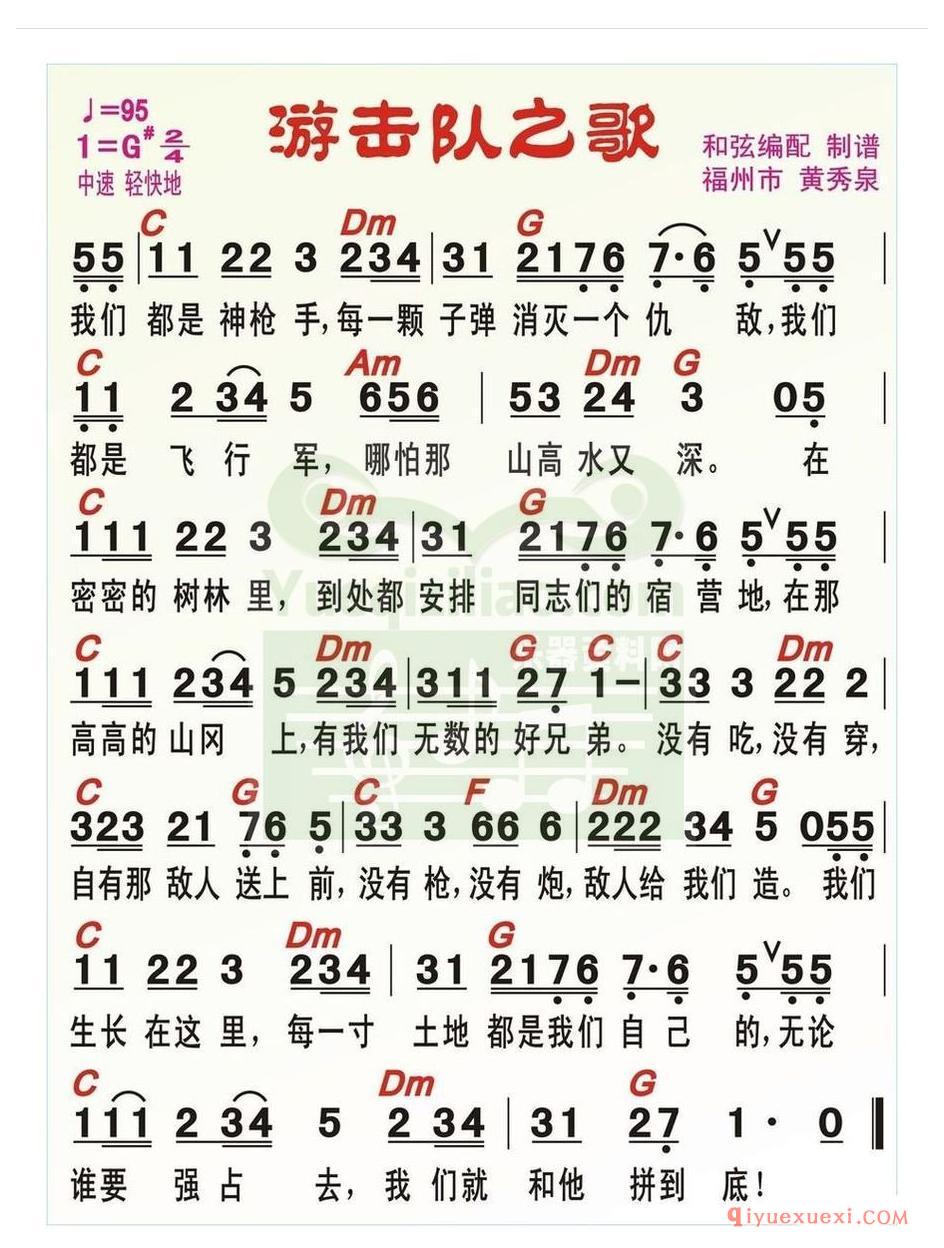 ♩=95
游击队之歌
1=G# 2/4
和弦编配 制谱
中速 轻快地
福州市 黄秀泉
C Dm G
55 | 11 22 3 234 | 31 2176 7·6 5 V 55 |
我们 都是 神枪 手,每一颗 子弹 消灭一个 仇 敌,我们
C Am Dm G
11 2 34 5 656 | 53 24 3 05 |
都是 飞 行 军, 哪怕那 山高 水又 深。 在
C Dm G
111 22 3 234 | 31 2176 7·6 5 V 55 |
密密的 树林 里, 到处都 安排 同志们的 宿 营 地,在那
C Dm G C C Dm
111 234 5 234 | 311 27 1– | 33 3 22 2 |
高高的 山冈 上,有我们 无数的 好兄 弟。 没有 吃,没有 穿,
C G C F Dm G
323 21 76 5 | 33 3 66 6 | 222 34 5 055 |
自有那 敌人 送上 前,没有 枪,没有 炮,敌人给 我们 造。 我们
C Dm G
11 22 3 234 | 31 2176 7·6 5 V 55 |
生长 在这 里, 每一寸 土地 都是我们 自 己 的,无论
C Dm G
111 2 34 5 2 34 | 31 27 1 · 0 ‖
谁要 强 占 去, 我 们就 和他 拼到 底!
qiyuexuexi.COM